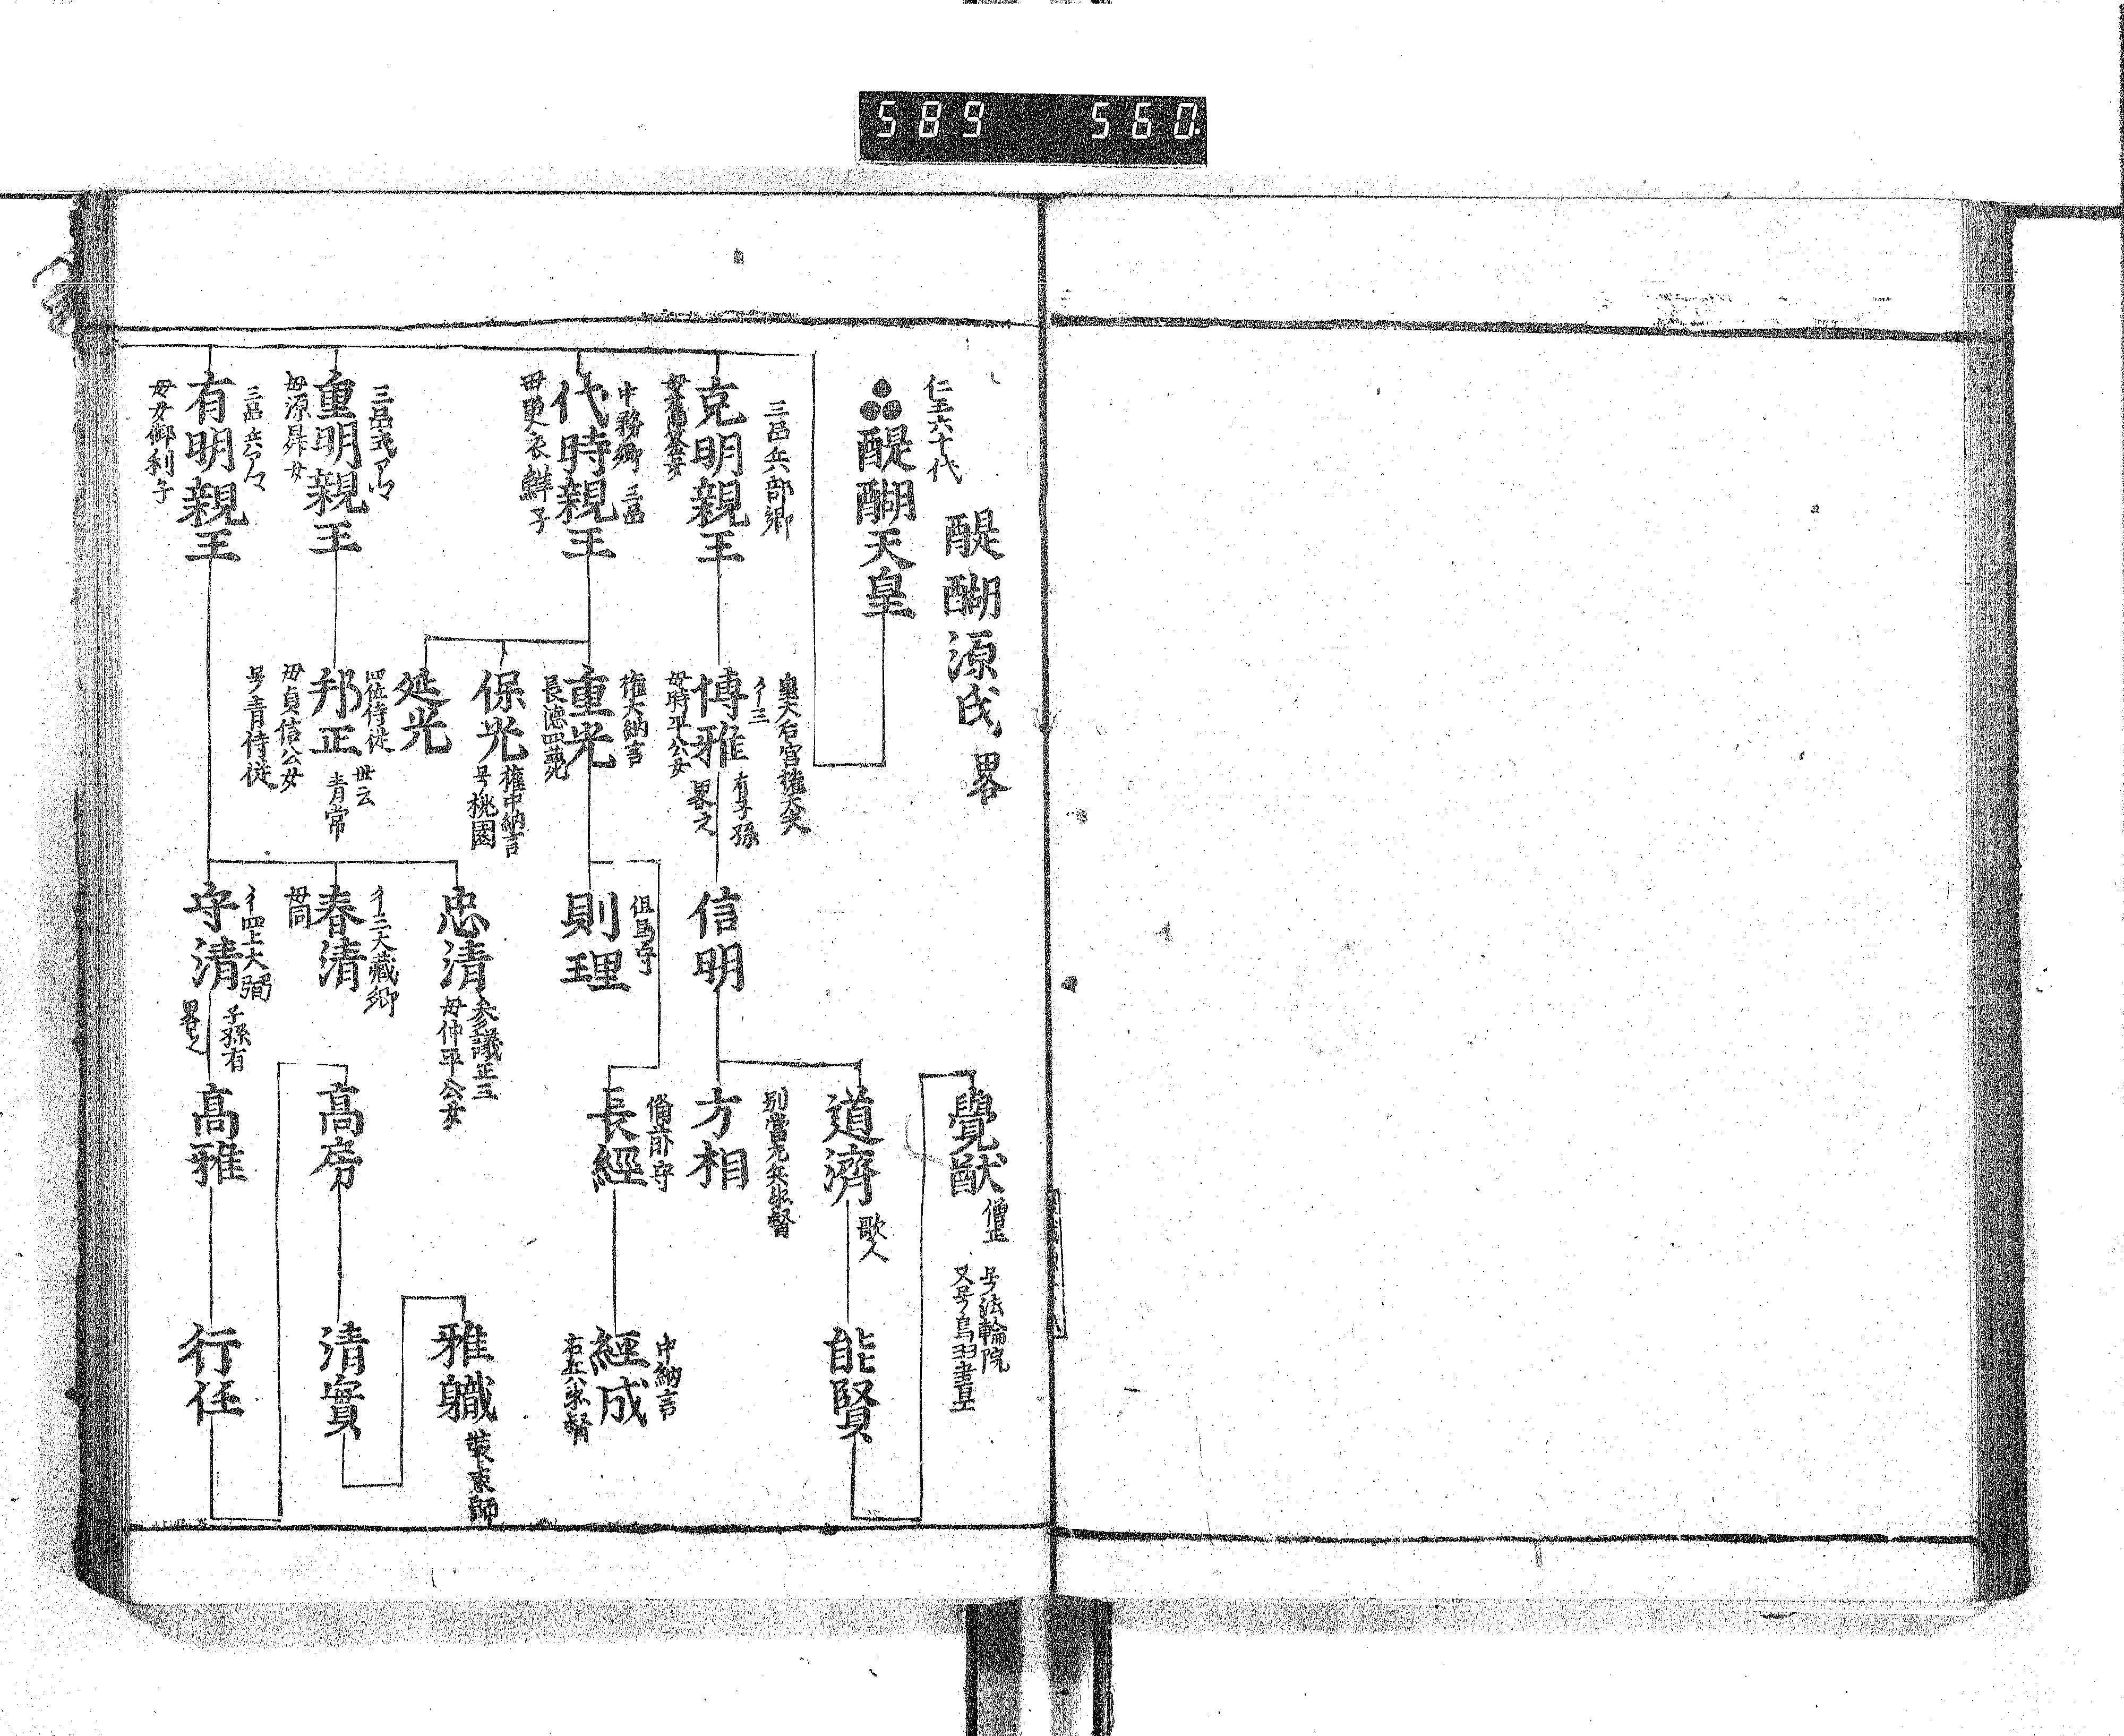 589 560.
醍醐源氏 畧
仁王六十代
醍醐天皇
三品兵部卿
克明親王
中務卿 三品
代時親王
母更衣鮮子
三品式アマ
重明親王
母源昇女
三品兵アマ
有明親王
母女御利子
皇太后宮権大夫
彳三
博雅
有子孫
畧之
母時平公女
権大納言
重光
長徳四薨
保光
権中納言
号桃園
延光
四位侍従
世云
邦正
青常
母貞信公女
号青侍従
信明
但馬守
則理
忠清
参議正三
母仲平公女
彳三大藏卿
春清
母同
彳四上大弼
守清
子孫有
畧之
覺猷
僧正
号法輪院
又号鳥羽
道濟
歌人
別當左兵衛督
方相
備前守
長經
高房
高雅
能賢
中納言
經成
右兵衛督
雅職
装束師
清實
行任